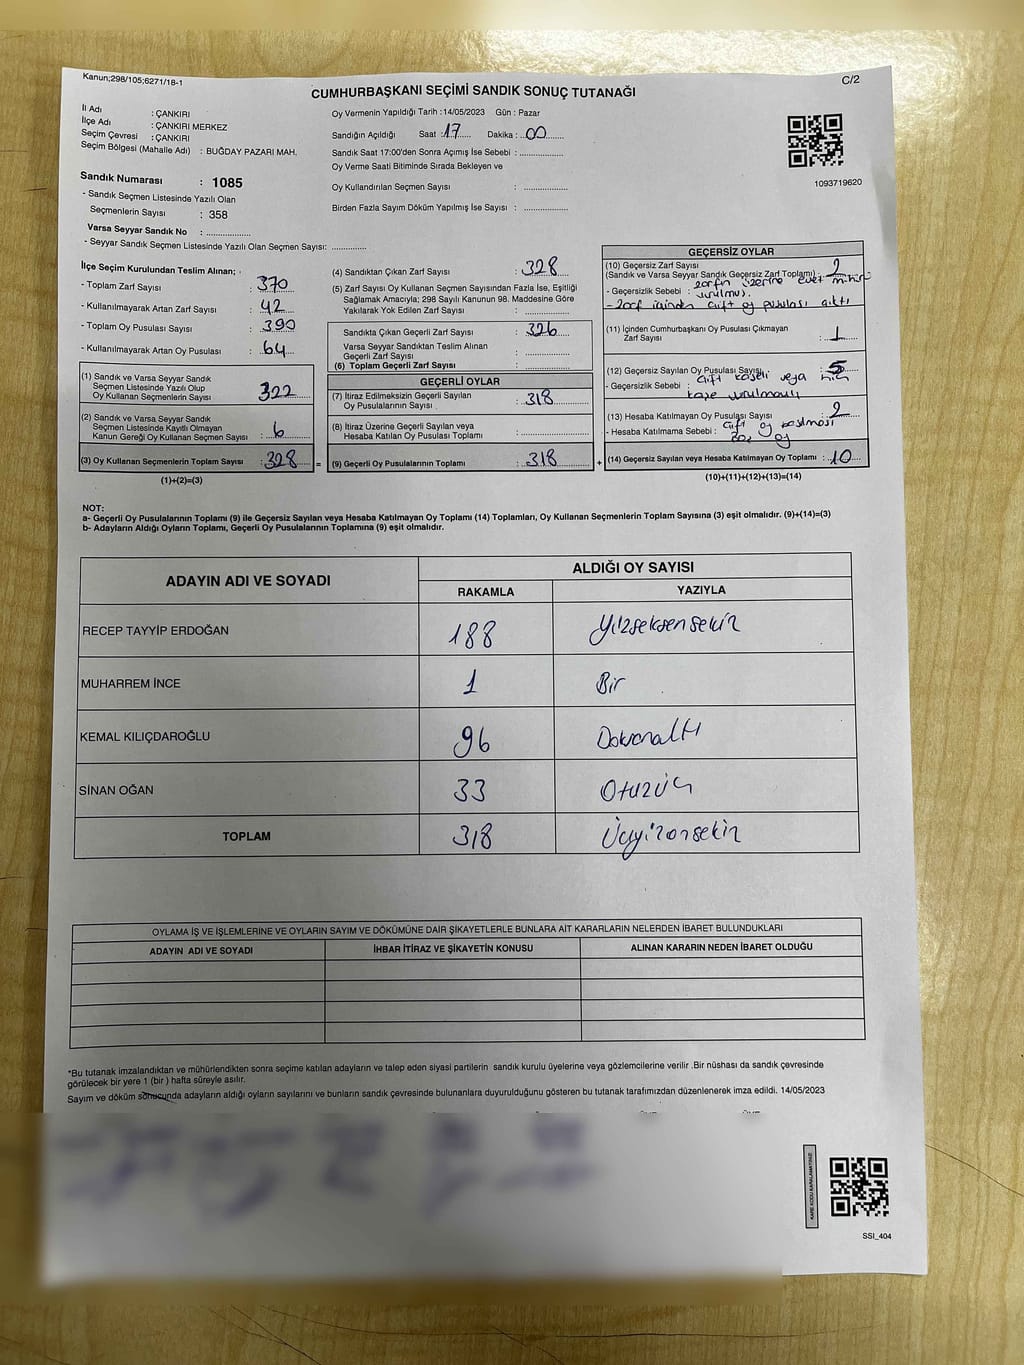 Kanun;298/105;6271/18-1
C/2
CUMHURBAŞKANI SEÇİMİ SANDIK SONUÇ TUTANAĞI
İl Adı : ÇANKIRI
İlçe Adı : ÇANKIRI MERKEZ
Seçim Çevresi : ÇANKIRI
Seçim Bölgesi (Mahalle Adı) : BUĞDAY PAZARI MAH.
Sandık Numarası : 1085
- Sandık Seçmen Listesinde Yazılı Olan
Seçmenlerin Sayısı : 358
Varsa Seyyar Sandık No : ....................
- Seyyar Sandık Seçmen Listesinde Yazılı Olan Seçmen Sayısı: ...............
Oy Vermenin Yapıldığı Tarih : 14/05/2023 Gün : Pazar
Sandığın Açıldığı Saat : 17 Dakika : 00
Sandık Saat 17:00'den Sonra Açımış İse Sebebi : ...................
Oy Verme Saati Bitiminde Sırada Bekleyen ve
Oy Kullandırılan Seçmen Sayısı : ...................
Birden Fazla Sayım Döküm Yapılmış İse Sayısı : ...................
1093719620
İlçe Seçim Kurulundan Teslim Alınan;
- Toplam Zarf Sayısı : 370
- Kullanılmayarak Artan Zarf Sayısı : 42
- Toplam Oy Pusulası Sayısı : 390
- Kullanılmayarak Artan Oy Pusulası : 64
(1) Sandık ve Varsa Seyyar Sandık
Seçmen Listesinde Yazılı Olup
Oy Kullanan Seçmenlerin Sayısı : 322
(2) Sandık ve Varsa Seyyar Sandık
Seçmen Listesinde Kayıtlı Olmayan
Kanun Gereği Oy Kullanan Seçmen Sayısı : 6
(3) Oy Kullanan Seçmenlerin Toplam Sayısı : 328 =
(1)+(2)=(3)
(4) Sandıktan Çıkan Zarf Sayısı : 328
(5) Zarf Sayısı Oy Kullanan Seçmen Sayısından Fazla İse, Eşitliği
Sağlamak Amacıyla; 298 Sayılı Kanunun 98. Maddesine Göre
Yakılarak Yok Edilen Zarf Sayısı : ...................
Sandıkta Çıkan Geçerli Zarf Sayısı : 326
Varsa Seyyar Sandıktan Teslim Alınan
Geçerli Zarf Sayısı : ...................
(6) Toplam Geçerli Zarf Sayısı : ...................
GEÇERLİ OYLAR
(7) İtiraz Edilmeksizin Geçerli Sayılan
Oy Pusulalarının Sayısı : 318
(8) İtiraz Üzerine Geçerli Sayılan veya
Hesaba Katılan Oy Pusulası Toplamı : ...................
(9) Geçerli Oy Pusulalarının Toplamı : 318 +
GEÇERSİZ OYLAR
(10) Geçersiz Zarf Sayısı
(Sandık ve Varsa Seyyar Sandık Geçersiz Zarf Toplamı) : 2
- Geçersizlik Sebebi : zarfın üzerine evet mührü
vurulmuş.
- zarf içinden çift oy pusulası çıktı
(11) İçinden Cumhurbaşkanı Oy Pusulası Çıkmayan
Zarf Sayısı : 1
(12) Geçersiz Sayılan Oy Pusulası Sayısı : 5
- Geçersizlik Sebebi : çift kaşeli veya hiç
kaşe vurulmamış
(13) Hesaba Katılmayan Oy Pusulası Sayısı : 2
- Hesaba Katılmama Sebebi : çift oy
oy
(14) Geçersiz Sayılan veya Hesaba Katılmayan Oy Toplamı : 10
(10)+(11)+(12)+(13)=(14)
NOT:
a- Geçerli Oy Pusulalarının Toplamı (9) ile Geçersiz Sayılan veya Hesaba Katılmayan Oy Toplamı (14) Toplamları, Oy Kullanan Seçmenlerin Toplam Sayısına (3) eşit olmalıdır. (9)+(14)=(3)
b- Adayların Aldığı Oyların Toplamı, Geçerli Oy Pusulalarının Toplamına (9) eşit olmalıdır.
ADAYIN ADI VE SOYADI
ALDIĞI OY SAYISI
RAKAMLA YAZIYLA
RECEP TAYYİP ERDOĞAN 188 Yüzseksensekiz
MUHARREM İNCE 1 Bir
KEMAL KILIÇDAROĞLU 96 Doksanaltı
SİNAN OĞAN 33 Otuzüç
TOPLAM 318 Üçyüzonsekiz
OYLAMA İŞ VE İŞLEMLERİNE VE OYLARIN SAYIM VE DÖKÜMÜNE DAİR ŞİKAYETLERLE BUNLARA AİT KARARLARIN NELERDEN İBARET BULUNDUKLARI
ADAYIN ADI VE SOYADI İHBAR İTİRAZ VE ŞİKAYETİN KONUSU ALINAN KARARIN NEDEN İBARET OLDUĞU
*Bu tutanak imzalandıktan ve mühürlendikten sonra seçime katılan adayların ve talep eden siyasi partilerin sandık kurulu üyelerine veya gözlemcilerine verilir .Bir nüshası da sandık çevresinde
görülecek bir yere 1 (bir ) hafta süreyle asılır.
Sayım ve döküm sonucunda adayların aldığı oyların sayılarını ve bunların sandık çevresinde bulunanlara duyurulduğunu gösteren bu tutanak tarafımızdan düzenlenerek imza edildi. 14/05/2023
KARE KODU KARALAMAYINIZ!
SSI_404